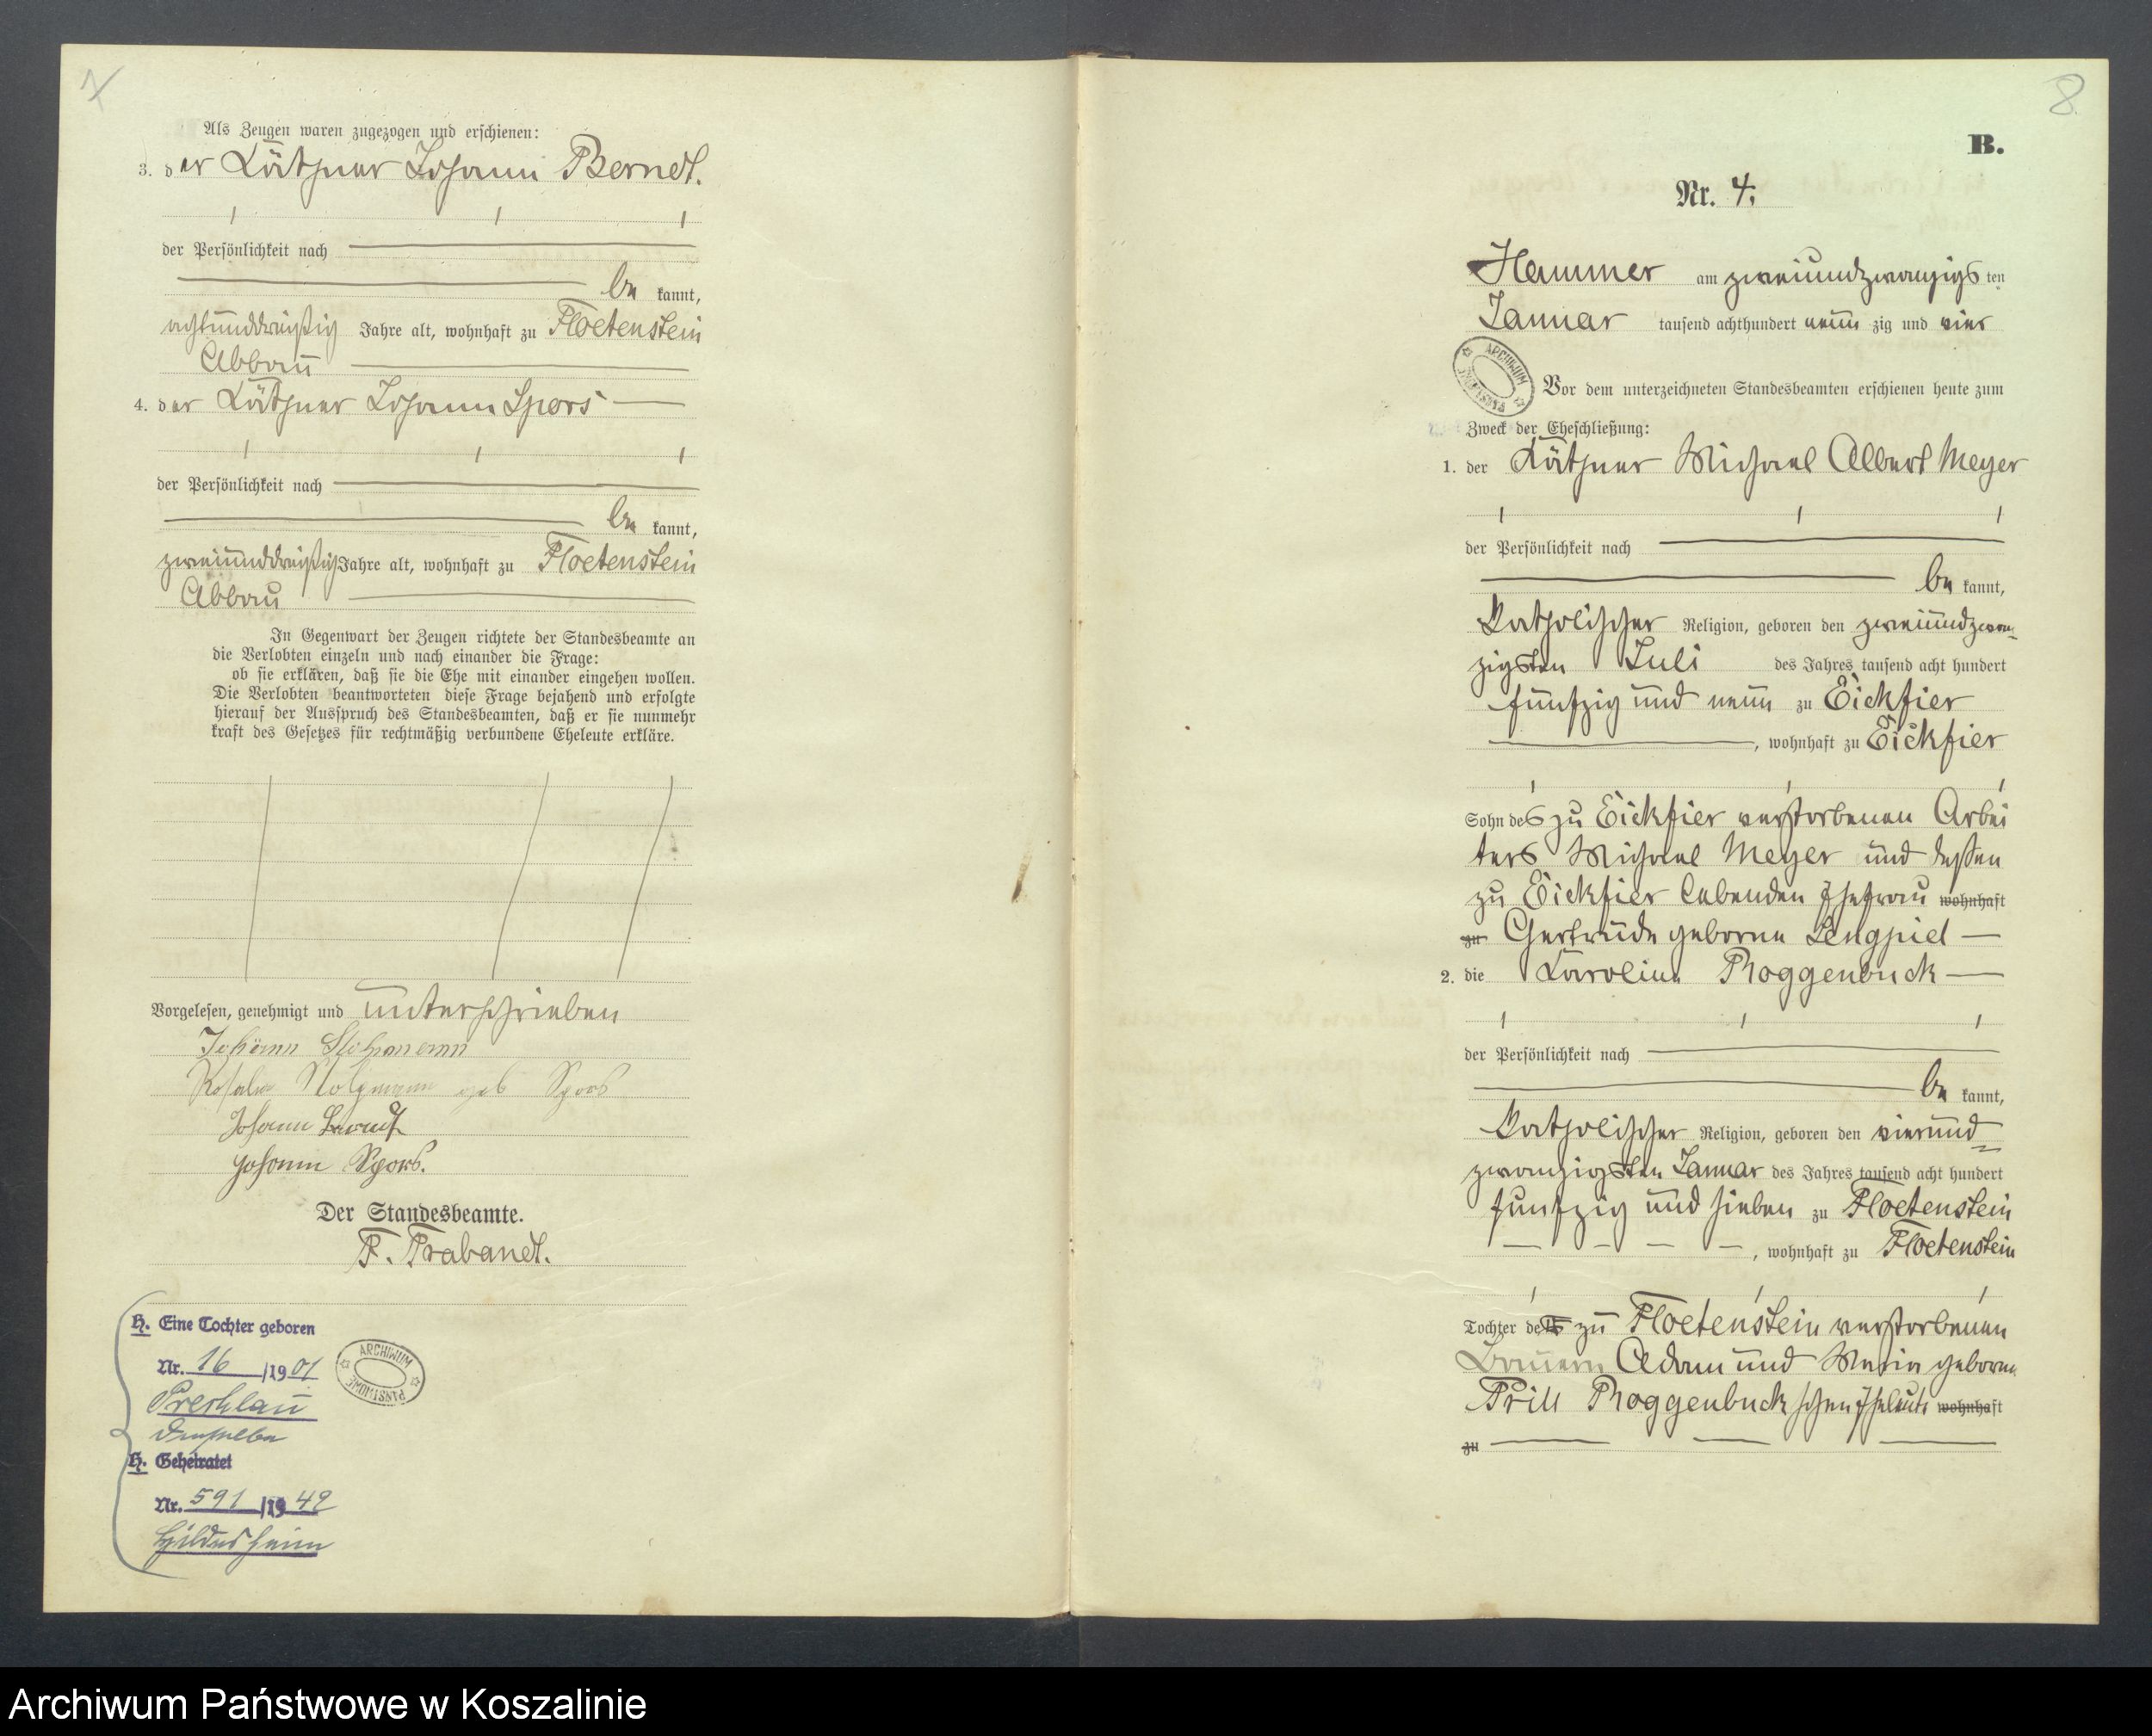 7
Als Zeugen waren zugezogen und erschienen:
3. der Käthner Johann Berndt.
der Persönlichkeit nach
be kannt,
achtunddreißig Jahre alt, wohnhaft zu Floetenstein
Abbau
4. der Käthner Johann Spors
der Persönlichkeit nach
be kannt,
zweiunddreißig Jahre alt, wohnhaft zu Floetenstein
Abbau
In Gegenwart der Zeugen richtete der Standesbeamte an
die Verlobten einzeln und nach einander die Frage:
ob sie erklären, daß sie die Ehe mit einander eingehen wollen.
Die Verlobten beantworteten diese Frage bejahend und erfolgte
hierauf der Ausspruch des Standesbeamten, daß er sie nunmehr
kraft des Gesetzes für rechtmäßig verbundene Eheleute erkläre.
Vorgelesen, genehmigt und unterschrieben
Johann
Rosalie geb Spors
Johann Berndt
Johann Spors.
Der Standesbeamte.
F. Trabandt.
H. Eine Tochter geboren
Nr. 16 /1901
Prechlau
Dieselbe
H. Geheiratet
Nr. 591 /1949
Hildesheim
ARCHIWUM PAŃSTWOWE
8
B.
Nr. 4.
Hammer am zweiundzwanzigs ten
Januar tausend achthundert neun zig und vier
ARCHIWUM PAŃSTWOWE
Vor dem unterzeichneten Standesbeamten erschienen heute zum
Zweck der Eheschließung:
1. der Käthner Michael Albert Meyer
der Persönlichkeit nach
be kannt,
katholischer Religion, geboren den zweiundzwan-
zigsten Juli des Jahres tausend acht hundert
fünfzig und neun zu Eickfier
, wohnhaft zu Eickfier
Sohn des zu Eickfier verstorbenen Arbei
ters Michael Meyer und dessen
zu Eickfier lebenden Ehefrau wohnhaft
zu Gertrude geborne Lengpiel
2. die Karoline Roggenbuck
der Persönlichkeit nach
be kannt,
katholischer Religion, geboren den vierund-
zwanzigsten Januar des Jahres tausend acht hundert
fünfzig und sieben zu Floetenstein
, wohnhaft zu Floetenstein
Tochter der zu Floetenstein verstorbenen
Bauern Adam und Maria geborne
Prill Roggenbuck schen Eheleute wohnhaft
zu
Archiwum Państwowe w Koszalinie